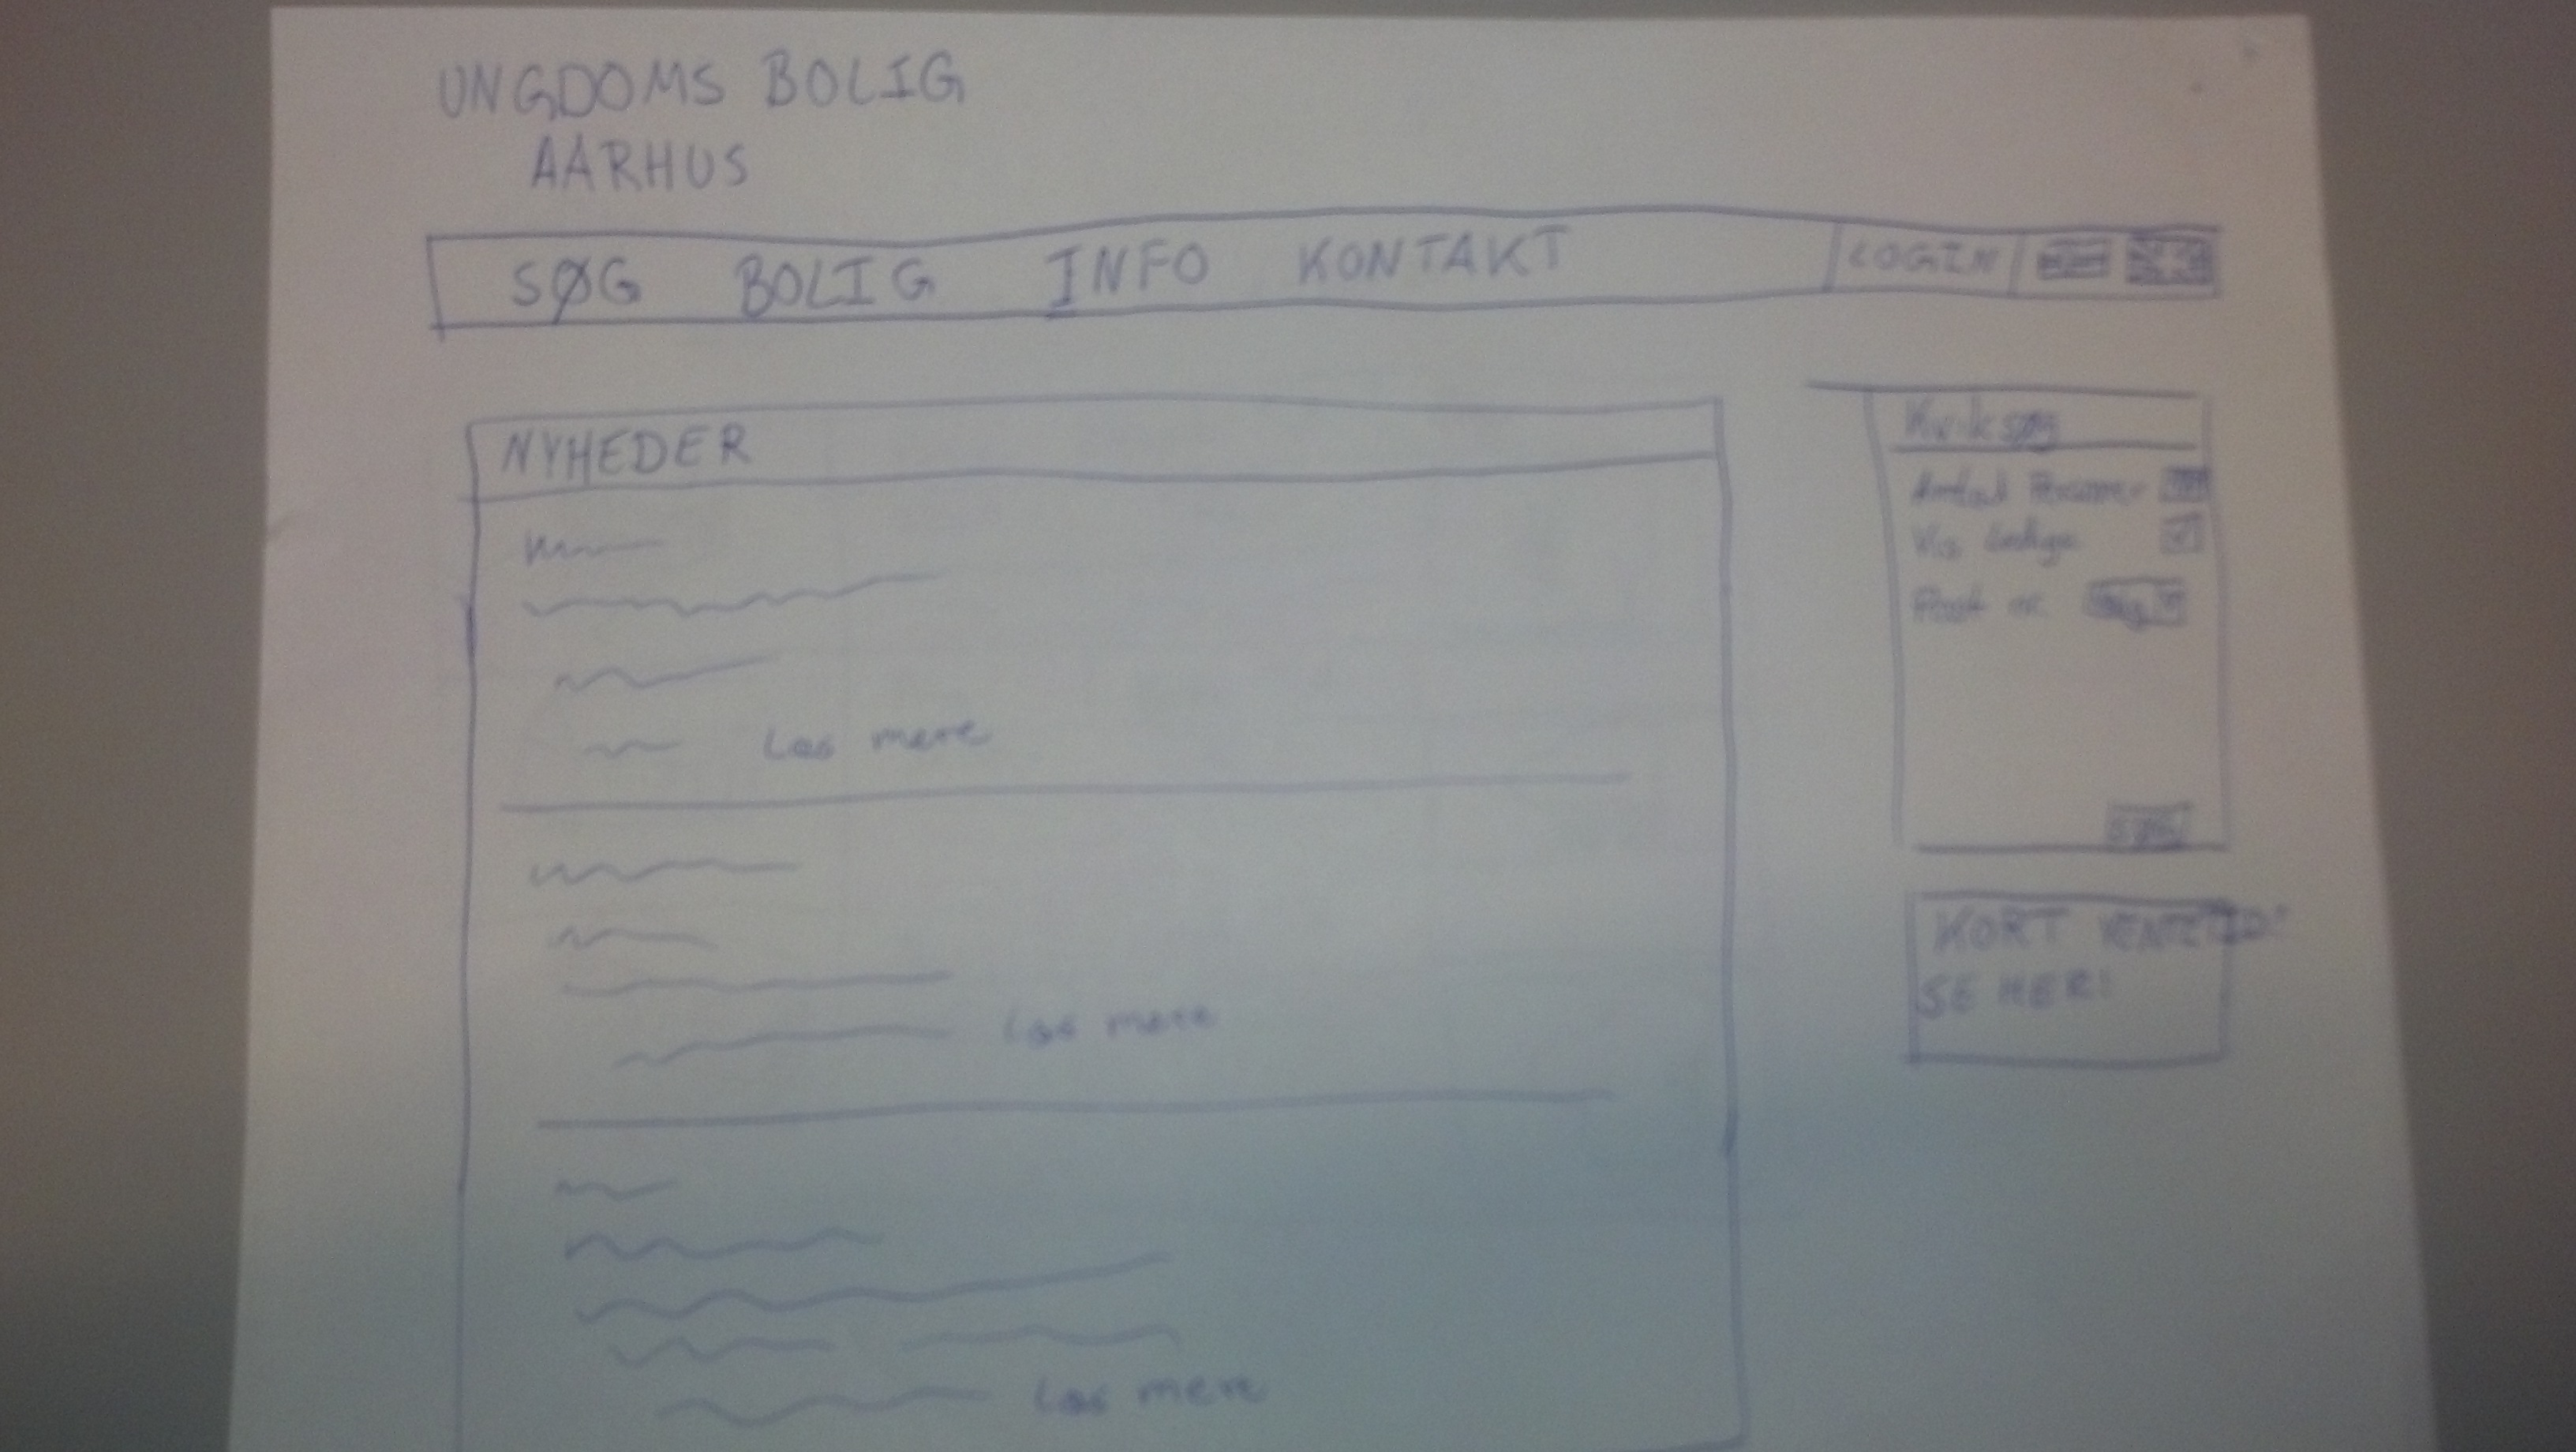 UNGDOMS BOLIG
AARHUS
SØG BOLIG INFO KONTAKT LOGIN
NYHEDER
Læs mere
Læs mere
Læs mere
Kviksøg
Antal Personer
Vis ledige
Post nr.
SØG
KORT VENTETID?
SE HER!